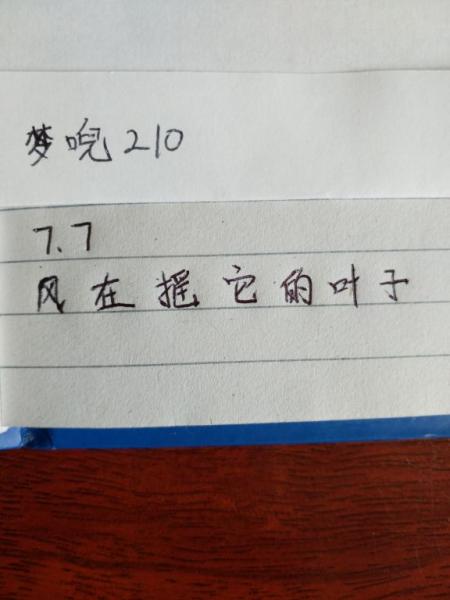 梦唲210
7.7
风在摇它的叶子